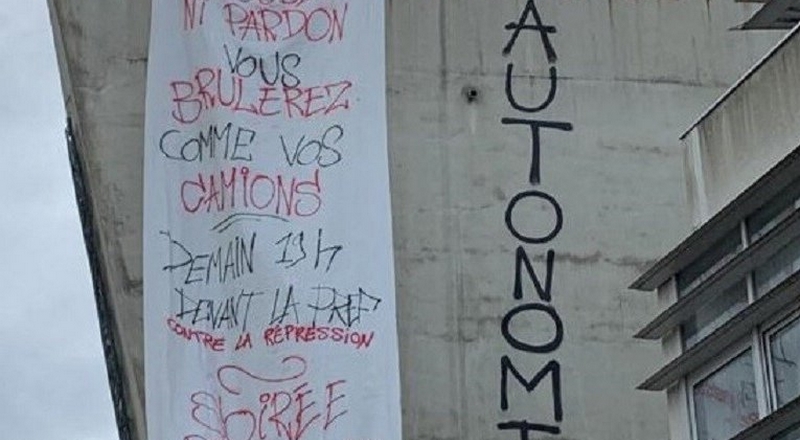 NI PARDON
VOUS
BRULEREZ
COMME VOS
CAMIONS
DEMAIN 19 h
DEVANT LA PREF
CONTRE LA RÉPRESSION
SOIRÉE
AUTONOM